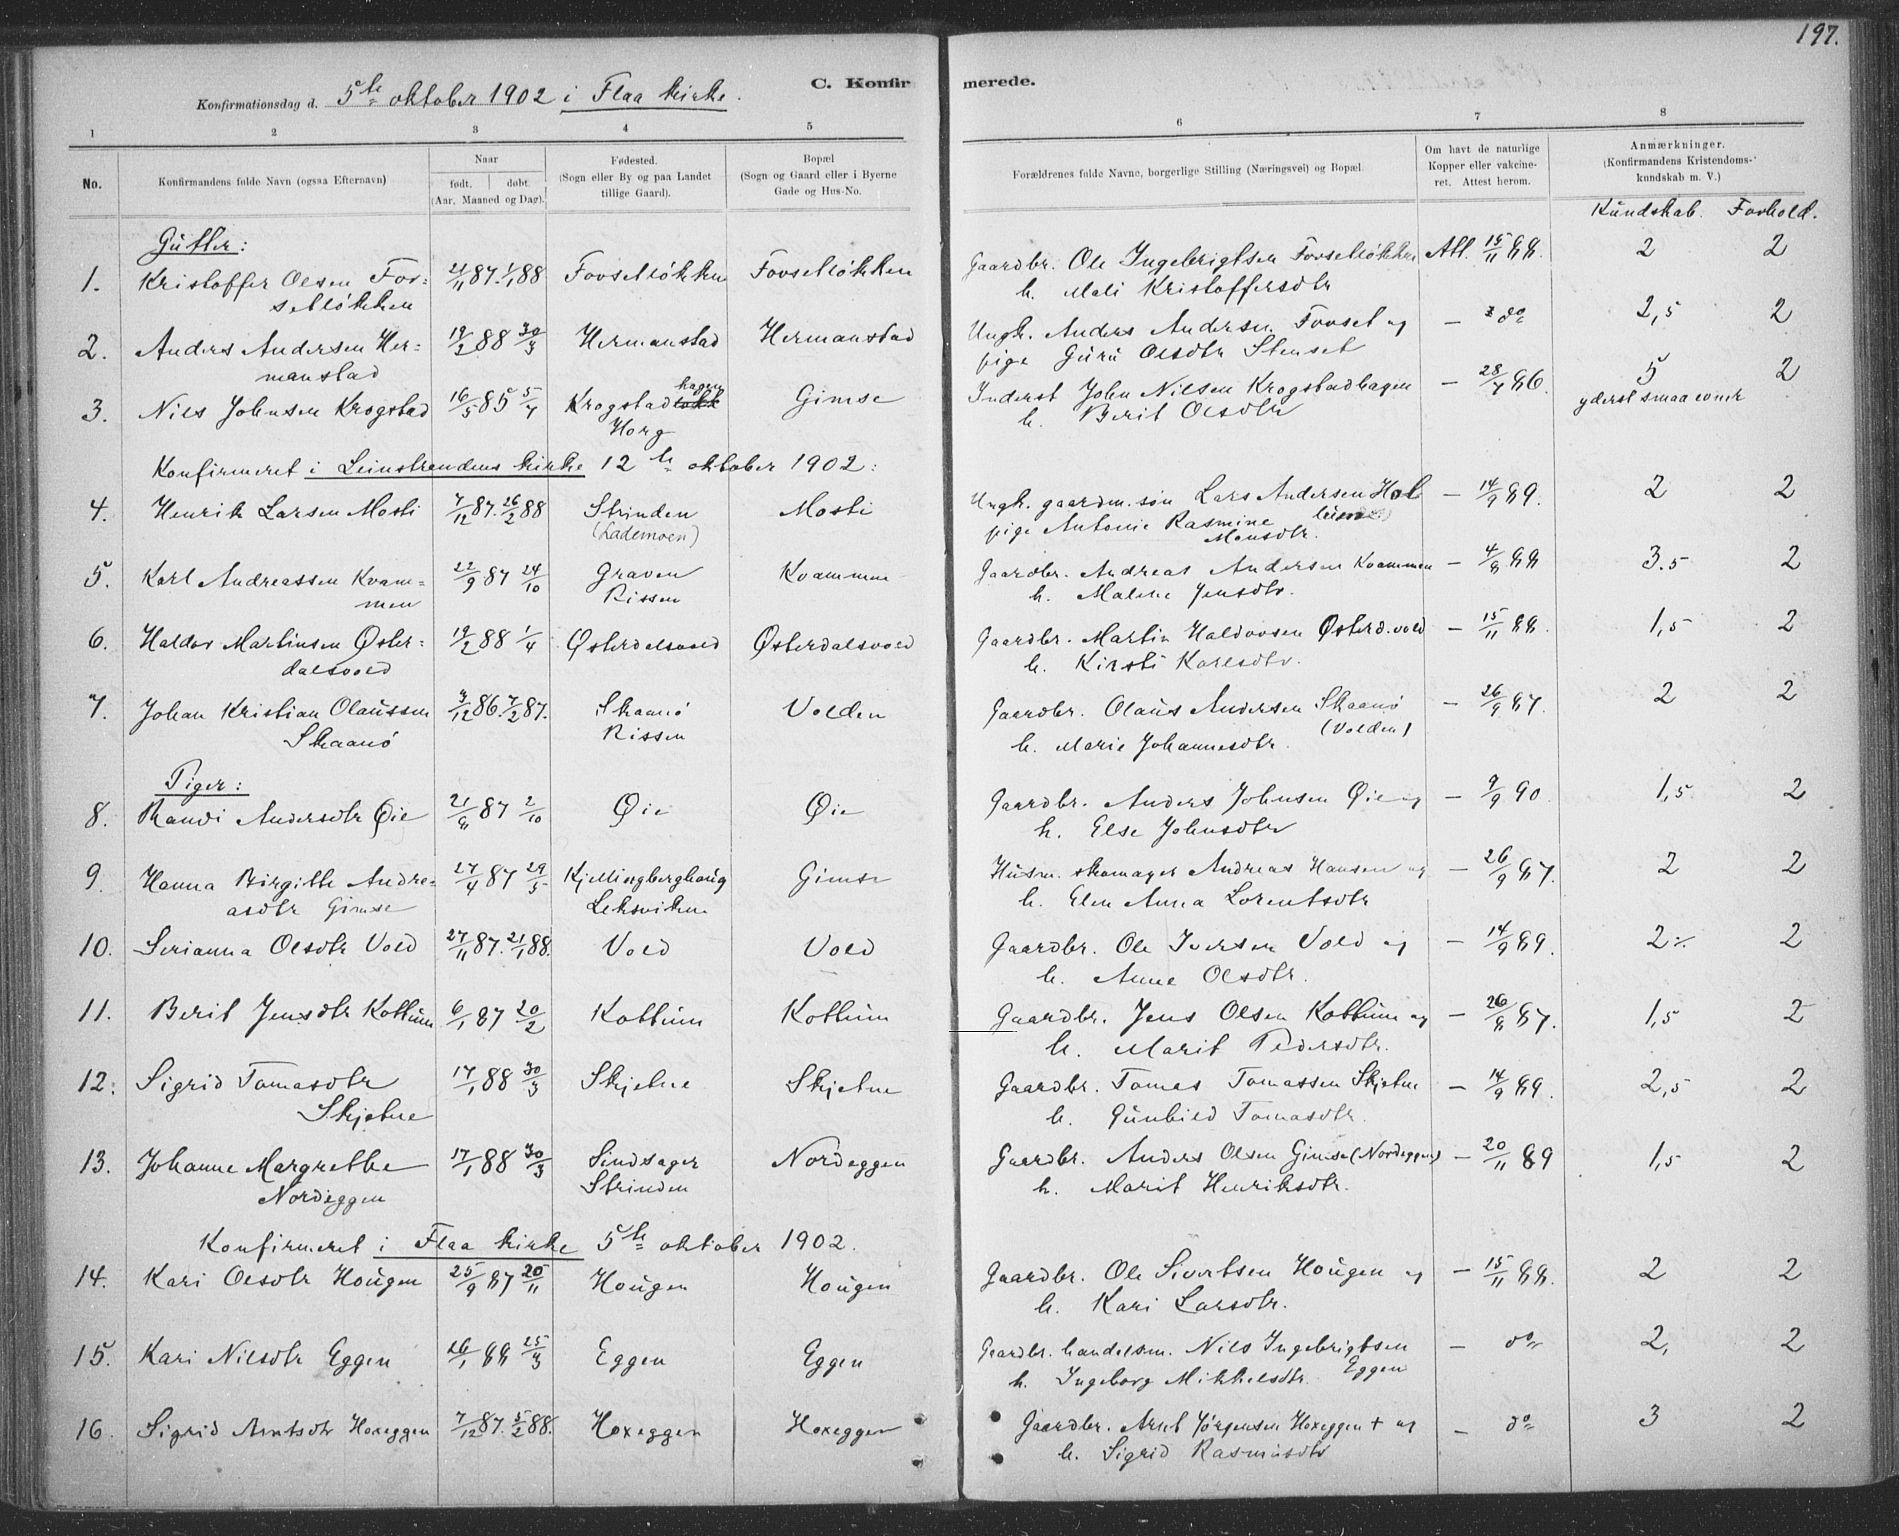 197.
Konfirmationsdag d. 5te oktober 1902 i Flaa kirke.
C. Konfirmerede.
1 2 3 4 5 6 7 8
No.
Konfirmandens fulde Navn (ogsaa Efternavn)
Naar født. døbt. (Aar, Maaned og Dag).
Fødested. (Sogn eller By og paa Landet tillige Gaard).
Bopæl (Sogn og Gaard eller i Byerne Gade og Hus-No.
Forældrenes fulde Navne, borgerlige Stilling (Næringsvei) og Bopæl.
Om havt de naturlige Kopper eller vakcineret. Attest herom.
Anmærkninger. (Konfirmandens Kristendomskundskab m. V.)
Kundskab. Forhold.
Gutter:
1. Kristoffer Olsen Fos- 21/11 87. 1/1 88 Fossetløkken Fossetløkken Gaardbr. Ole Ingebrigtsen Fossetløkken Att. 15/11 88. 2 2
setløkken h. Mali Kristoffersdtr
2. Anders Andersen Her- 19/2 88 30/3 Hermanstad Hermanstad Ungk. Anders Andersn. Fosset og — do 2,5 2
manstad pige Guru Olsdtr Stenset
3. Nils Johnsen Krogstad 16/5 85 5/7 Krogstadhagen Gimse Inderst John Nilsen Krogstadhagen — 28/7 86. 5 2
Horg h. Berit Olsdtr yderst smaa evner
Konfirmeret i Leinstrandens kirke 12te oktober 1902:
4. Henrik Larsen Mosti 7/12 87. 26/2 88 Strinden Mosti Ungk. gaardm. søn Lars Andersen — 14/9 89. 2 2
(Lademoen) pige Antonie Rasmine Monsdtr.
5. Karl Andreassen Kvam- 22/9 87 24/10 Graven Kvammen Gaardbr. Andreas Andersen Kvammen — 4/8 88 3.5 2
men Rissen h. Malene Jensdtr.
6. Haldor Martinsen Øster- 19/2 88 1/4 Østerdalsvold Østerdalsvold Gaardbr. Martin Haldorsen Østerd.vold — 15/11 88. 1,5 2
dalsvold h. Kirsti Karlsdtr.
7. Johan Kristian Olaussen 3/12 86. 7/2 87. Skaanø Volden Gaardbr. Olaus Andersen Skaanø — 26/9 87. 2 2
Skaanø Rissen (Volden)
h. Marie Johannesdtr.
Piger:
8. Randi Andersdtr Øie 21/8 87 2/10 Øie Øie Gaardbr. Anders Johnsen Øie og — 9/9 90. 1,5 2
h. Else Johnsdtr
9. Hanna Birgitte Andre- 27/4 87 29/5 Kjellingberghaug Gimse Husm. skomager Andreas Hansen og — 26/9 87. 2 2
asdtr Gimse Leksviken h. Elen Anna Lorentsdtr
10. Serianna Olsdtr Vold 27/11 87. 21/1 88. Vold Vold Gaardbr. Ole Iversen Vold og — 14/9 89. 2 2
h. Anne Olsdtr.
11. Berit Jensdtr Kottum 6/1 87 20/2 Kottum Kottum Gaardbr. Jens Olsen Kottum og — 26/8 87. 1,5 2
h. Marit Pedersdtr.
12. Sigrid Tomasdtr 17/1 88 30/3 Skjetne Skjetne Gaardbr. Tomas Tomassen Skjetne — 14/9 89. 2,5 2
Skjetne h. Gunhild Tomasdtr.
13. Johanne Margrethe 17/1 88 30/3 Sindsager Nordeggen Gaardbr. Anders Olsen Gimse (Nordeggen) — 20/11 89 1,5 2
Nordeggen Strinden h. Marit Henriksdtr.
Konfirmeret i Flaa kirke 5te oktober 1902.
14. Kari Olsdtr Hougen 25/9 87 20/11 Hougen Hougen Gaardbr. Ole Sivertsen Hougen og — 15/11 88. 2 2
h. Kari Larsdtr.
15. Kari Nilsdtr Eggen 26/1 88 25/3 Eggen Eggen Gaardbr. handelsm. Nils Ingebrigtsen — do 2, 2
h. Ingeborg Mikkelsdtr. Eggen
16. Sigrid Arntsdtr Hoxeggen 7/12 87. 5/2 88. Hoxeggen Hoxeggen Gaardbr. Arnt Jørgensen Hoxeggen + og — do 3 2
h. Sigrid Rasmusdtr